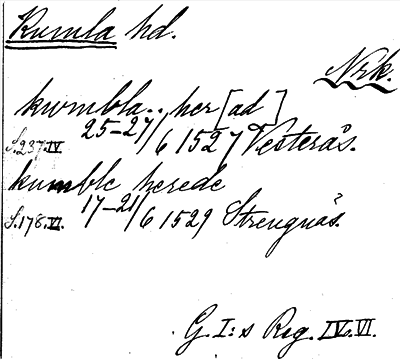 Kumla hd.
Nrk.
kwmbla.. her[ad]
S.237.IV 25-27/6 1527 Vesterås.
kumble herede
S.178.VI. 17-21/6 1529 Strengnäs.
G. I:s Reg. IV. VI.